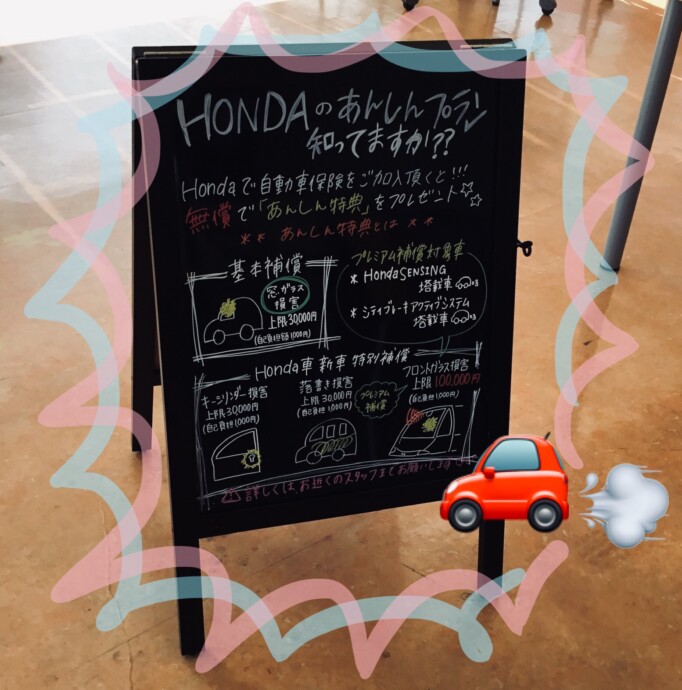 HONDAのあんしんプラン
知ってますか??
Hondaで自動車保険をご加入頂くと!!!
無償で「あんしん特典」をプレゼント☆☆
** あんしん特典とは **
基本補償
窓ガラス
損害
上限30,000円
(自己負担額1,000円)
プレミアム補償対象車
* Honda SENSING
搭載車
* シティブレーキアクティブシステム
搭載車
Honda車 新車 特別補償
キーシリンダー損害
上限30,000円
(自己負担1,000円)
落書き損害
上限30,000円
(自己負担1,000円)
プレミアム
補償
フロントガラス損害
上限100,000円
(自己負担1,000円)
詳しくは、お近くのスタッフまでお願いします